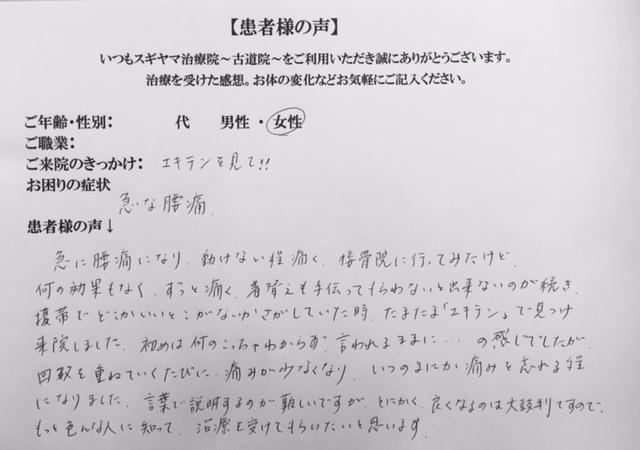 【患者様の声】
いつもスギヤマ治療院～古道院～をご利用いただき誠にありがとうございます。
治療を受けた感想。お体の変化などお気軽にご記入ください。
ご年齢・性別: 代 男性・女性
ご職業:
ご来院のきっかけ: エキテンを見て!!
お困りの症状
急な腰痛
患者様の声↓
急に腰痛になり、動けない程痛く、接骨院に行ってみたけど、
何の効果もなく、ずっと痛く、着替えも手伝ってもらわないと出来ないのが続き、
携帯でどこかいいとこがないかさがしていた時、たまたま「エキテン」で見つけ
来院しました。初めは何のこっちゃわからず、言われるままに…の感じでしたが、
回数を重ねていくたびに、痛みが少なくなり、いつのまにか痛みを忘れる程
になりました。言葉で説明するのが難しいですが、とにかく、良くなるのは太鼓判ですので、
もっと色んな人に知って、治療を受けてもらいたいと思います。